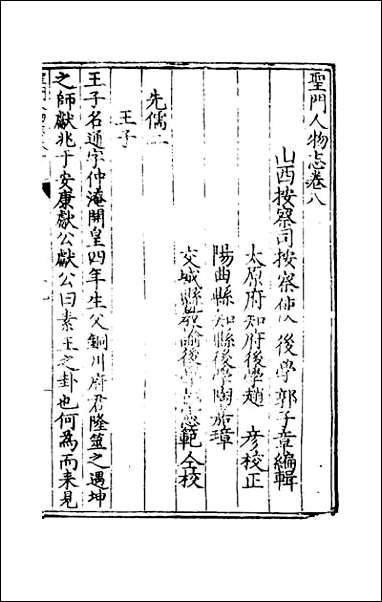 聖門人物志卷八
山西按察司按察使 後學 郭子章編輯
太原府知府後學趙 彥校正
陽曲縣知縣後學陶嘉璋
交城縣教諭後學 範仝校
先儒二
王子
王子名通字仲淹開皇四年生父銅川府君隆筮之遇坤
之師獻兆于安康獻公獻公曰素王之卦也何為而来見